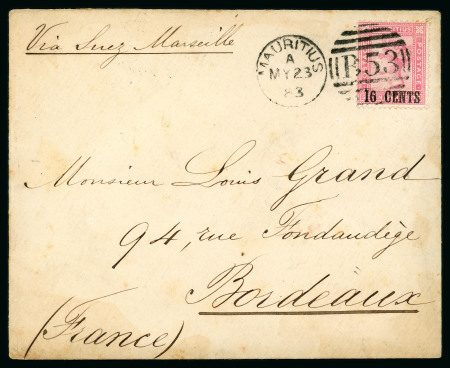 Via Suez Marseille
MAURITIUS
A
MY 23
83
B53
16 CENTS
Monsieur Louis Grand
94, rue Fondaudège
Bordeaux
(France)